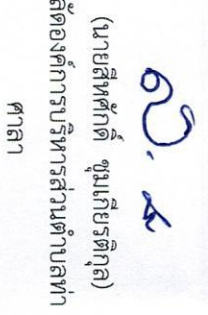 (นายสิทศักดิ์ ชุมเกียรติกุล)
ลัดองค์การบริหารส่วนตำบลท่า
ศาลา